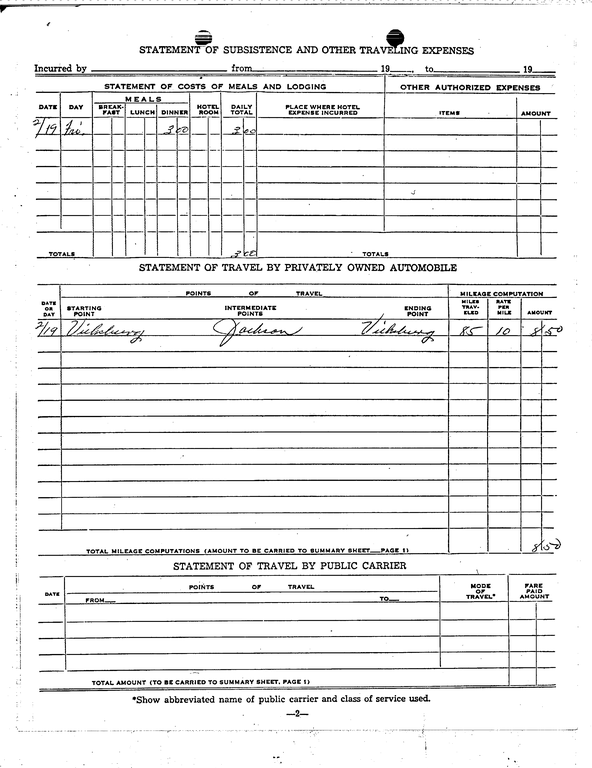 STATEMENT OF SUBSISTENCE AND OTHER TRAVELING EXPENSES
Incurred by from 19 , to 19
STATEMENT OF COSTS OF MEALS AND LODGING OTHER AUTHORIZED EXPENSES
DATE DAY MEALS BREAK-FAST LUNCH DINNER HOTEL ROOM DAILY TOTAL PLACE WHERE HOTEL EXPENSE INCURRED ITEMS AMOUNT
2/19 Fri. 3 00 3 00
TOTALS 3 00 TOTALS
STATEMENT OF TRAVEL BY PRIVATELY OWNED AUTOMOBILE
POINTS OF TRAVEL MILEAGE COMPUTATION
DATE OR DAY STARTING POINT INTERMEDIATE POINTS ENDING POINT MILES TRAV-ELED RATE PER MILE AMOUNT
2/19 Vicksburg Jackson Vicksburg 85 10 8 50
TOTAL MILEAGE COMPUTATIONS (AMOUNT TO BE CARRIED TO SUMMARY SHEET—PAGE 1) 8 50
STATEMENT OF TRAVEL BY PUBLIC CARRIER
DATE POINTS OF TRAVEL MODE OF TRAVEL* FARE PAID AMOUNT
FROM— TO—
TOTAL AMOUNT (TO BE CARRIED TO SUMMARY SHEET, PAGE 1)
*Show abbreviated name of public carrier and class of service used.
—2—